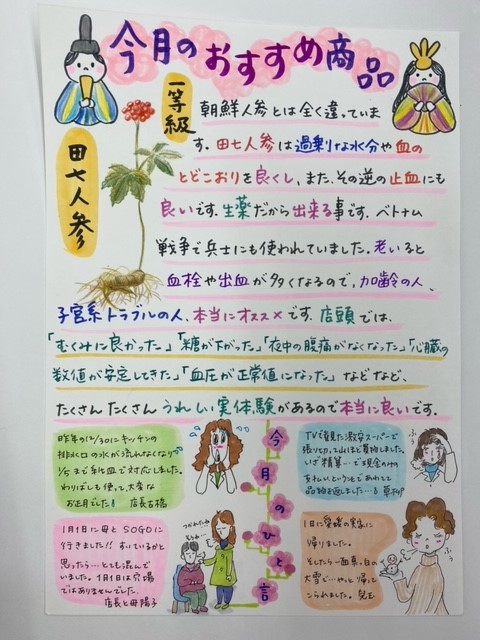 今月のおすすめ商品
一等級
田七人参
朝鮮人参とは全く違っていま
す。田七人参は過剰な水分や血の
とどこおりを良くし、また、その逆の止血にも
良いです。生薬だから出来る事です。ベトナム
戦争で兵士にも使われていました。老いると
血栓や出血が多くなるので、加齢の人、
子宮系トラブルの人、本当にオススメです。店頭では、
「むくみに良かった」「糖が下がった」「夜中の腹痛がなくなった」「心臓の
数値が安定してきた」「血圧が正常値になった」などなど、
たくさんたくさんうれしい実体験があるので本当に良いです。
今月のひと言
昨年の12/30にキッチンの
排水口の水が流れなくなり
1/5まで
で対応しました。
わりばしも使って、大変な
お正月でした! 店長古橋
TVで見た激安スーパーで
張り切って山ほど買物しました。
いざ精算…で現金のみの
支払いというコとであわてて
品物を返しました…
1月1日に母とSOGOに
行きました!!すいているかと
思ったら…とても混んで
いました。1月1日は穴場
ではありませんでした。
店長と母陽子
つかれたね
1日に愛媛の実家に
帰りました。
そしたら一面真っ白の
大雪で…やっと帰って
こられました。
ふぅ